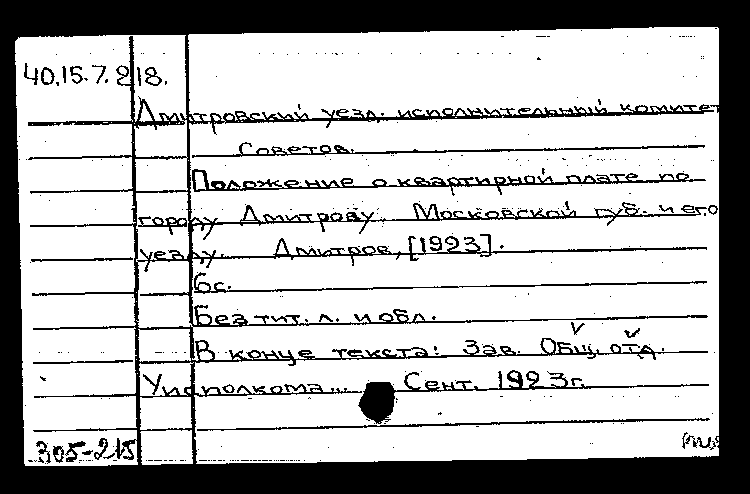 40.15.7.218.
Дмитровский уезд. исполнительный комитет
Советов.
Положение о квартирной плате по
городу Дмитрову, Московской губ. и его
уезду. Дмитров, [1923].
6с.
Без тит. л. и обл.
В конце текста: Зав. Общ. отд.
Уисполкома... Сент. 1923г.
305-215